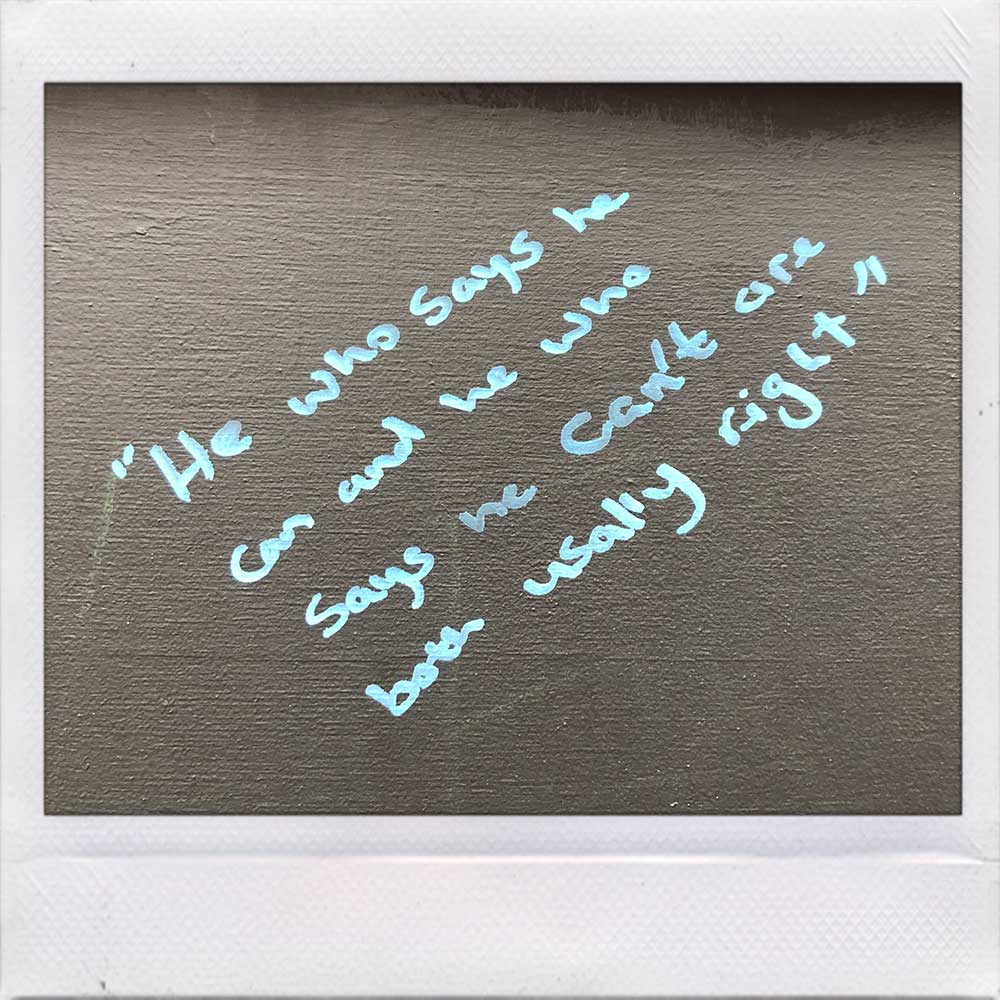 "He who says he
can and he who
says he can't are
both usally right"